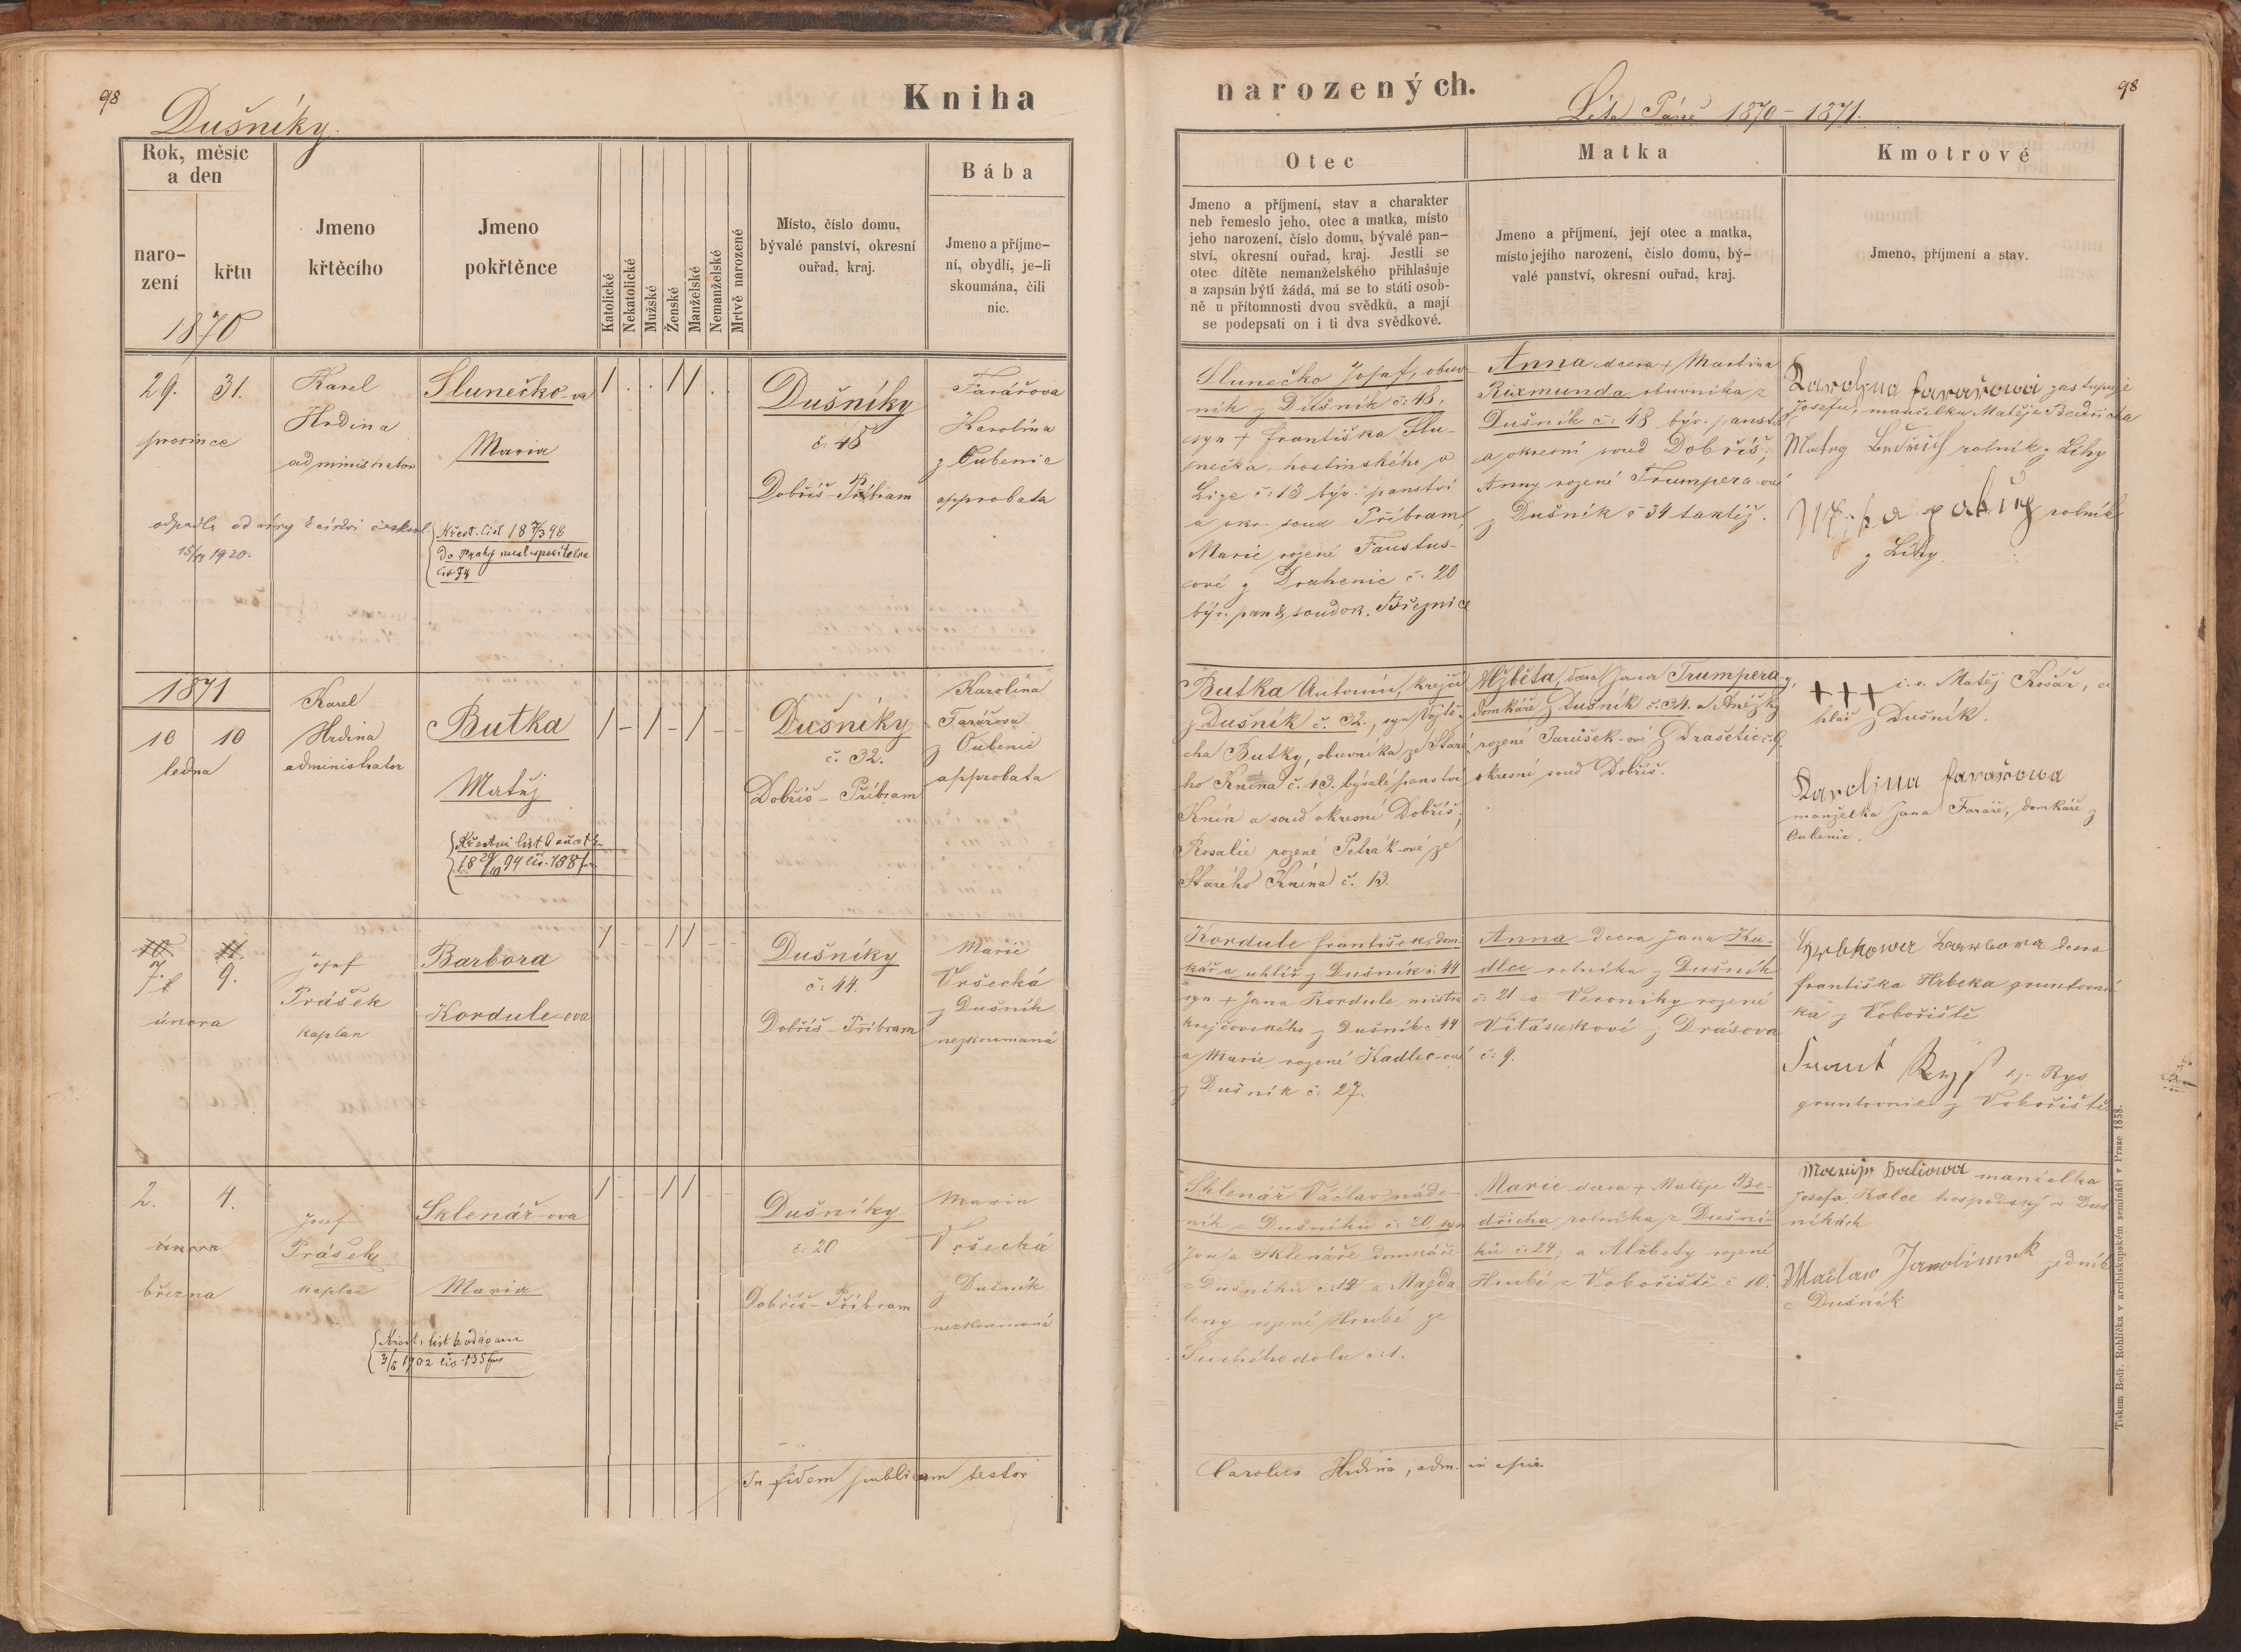 98
Dušníky.
Kniha
Rok, měsíc
a den
naro-
zení
křtu
1870
Jmeno
křtěcího
Jmeno
pokřtěnce
Katolické
Nekatolické
Mužské
Ženské
Manželské
Nemanželské
Mrtvě narozené
Místo, číslo domu,
bývalé panství, okresní
ouřad, kraj.
Bába
Jmeno a příjme-
ní, obydlí, je-li
skoumána, čili
nic.
29. 31.
prosince
Karel
Hrdina
administrator
Slunečko-va
Maria
1 . . 1 1 . .
Dušníky
č. 48
Dobříš - Příbram
Farářova
Karolína
z Oubenic
approbata
odpadla od víry k církvi českosl.
1920.
Křest. list 18 98
Do Prahy
1871
10 10
ledna
Karel
Hrdina
administrator
Butka
Matěj
1 - 1 - 1 - -
Dušníky
č. 32.
Dobříš - Příbram
Karolína
Farářova
z Oubenic
approbata
Křestní list
94 čís. 188
10. 11.
7. 9.
února
Josef
Prášek
kaplan
Barbora
Kordule-ova
1 - - 1 1 - -
Dušníky
č: 44.
Dobříš - Příbram
Marie
Vršecká
z Dušník
nezkoumaná
2. 4.
února
března
Josef
Prášek
kaplan
Sklenář-ova
Maria
1 - - 1 1 - -
Dušníky
č: 20
Dobříš - Příbram
Maria
Vršecká
z Dušník
nezkoumaná
Křest. list k oddavani
1902 čís. 135
In fidem publicam testor
narozených.
Léta Páně 1870 - 1871.
98
Otec
Jmeno a příjmení, stav a charakter
neb řemeslo jeho, otec a matka, místo
jeho narození, číslo domu, bývalé pan-
ství, okresní ouřad, kraj. Jestli se
otec dítěte nemanželského přihlašuje
a zapsán býti žádá, má se to státi osob-
ně u přítomnosti dvou svědků, a mají
se podepsati on i ti dva svědkové.
Matka
Jmeno a příjmení, její otec a matka,
místo jejího narození, číslo domu, bý-
valé panství, okresní ouřad, kraj.
Kmotrové
Jmeno, příjmení a stav.
Slunečko Josef, obuv-
ník z Dušník č: 48,
syn + Františka Slu-
nečka, hostinského v
Lize č: 13 býv. panství
a okr. soud Příbram,
Marie rozené Faustus-
ové z Drahenic č. 20
býv. pan & soudok. Březnice
Anna dcera + Martina
Rixmunda obuvníka z
Dušník č: 48 býv. panství
a okresní soud Dobříš,
Anny rozené Trumpera-ové
z Dušník č 34 taktéž.
Karolyna Farařowa zastupuje
Josefu, manželku Matěje Bedřicha
Matěy Bedřich rolník z Lihy
rolník
z Lihy.
Butka Antonín, krejčí
z Dušník č. 32., syn Vojtě-
cha Butky, obuvníka ze Staré-
ho Knína č. 13. bývalé panství
Knín a soud okresní Dobříš,
Rosalie rozené Petrák-ové ze
Starého Knína č. 13.
Alžběta, dcera Jana Trumpera-y,
domkáře z Dušník č. 34. a Anežky
rozené Jarušek-ové z Drašetic č. 9.
okresní soud Dobříš.
+++ i. e. Matěj Košář, o
z Dušník.
Karolina Farařowa
manželka Jana Faráře, domkáře z
Oubenic.
Kordule František, dom-
kář a uhlíř z Dušník č: 44
syn + Jana Kordule mistra
krejčovského z Dušník č 44
a Marie rozené Kadlec-ové
z Dušník č: 27.
Anna dcera Jana Ka-
dlec rolníka z Dušník
č: 21 a Veroniky rozené
Vitáskové z Drásova
č: 9.
Hrbkowa Barbora dcera
Františka Hrbeka gruntovní-
ka z Vobořiště
Frant Ryss Rys
gruntovník z Vobořiště.
Sklenář Václav náde-
ník z Dušníků č: 20, syn
Josefa Sklenáře domkáře
z Dušníků č: 14 a Magda-
leny rozené Hrubé ze
Suchého dolu č: 1.
Marie dcera + Matěje Be-
dřicha rolníka z Dušní-
ků č: 24; a Alžbety rozené
Hrubé z Vobořiště č 10.
Maryje Kalcowa manželka
Josefa Kalce hospodský v Duš
níkách
Wáclaw Jarolímek zedník
z Dušník
Carolus Hrdina, adm. in spir.
Tiskem Bedř. Rohlíčka v arcibiskupském semináři v Praze 1858.